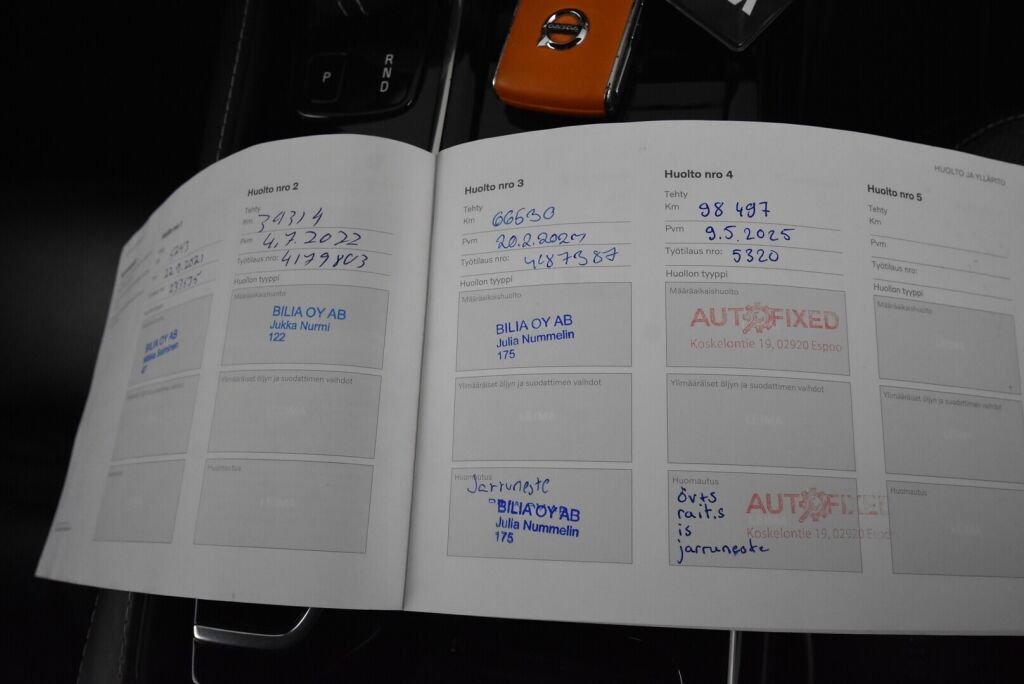 P
R
N
D
VOLVO
HUOLTO JA YLLÄPITO
Huolto nro 2
Tehty
Km 39314
Pvm 4.7.2022
Työtilaus nro: 4179803
Huollon tyyppi
Määräaikaishuolto
BILIA OY AB
Jukka Nurmi
122
Ylimääräiset öljyn ja suodattimen vaihdot
LEIMA
Huomautus
Huolto nro 3
Tehty
Km 66630
Pvm
Työtilaus nro: 4187387
Huollon tyyppi
Määräaikaishuolto
BILIA OY AB
Julia Nummelin
175
Ylimääräiset öljyn ja suodattimen vaihdot
LEIMA
Huomautus
Jarruneste
BILIA OY AB
Julia Nummelin
175
Huolto nro 4
Tehty
Km 98 497
Pvm 9.5.2025
Työtilaus nro: 5320
Huollon tyyppi
Määräaikaishuolto
AUTOFIXED
Koskelontie 19, 02920 Espoo
Ylimääräiset öljyn ja suodattimen vaihdot
LEIMA
Huomautus
öv+s
rait.s
is
jarruneste
AUTOFIXED
Koskelontie 19, 02920 Espoo
Huolto nro 5
Tehty
Km
Pvm
Työtilaus nro:
Huollon tyyppi
Määräaikaishuolto
Ylimääräiset öljyn ja suodattimen vaihdot
LEIMA
Huomautus
BILIA OY AB